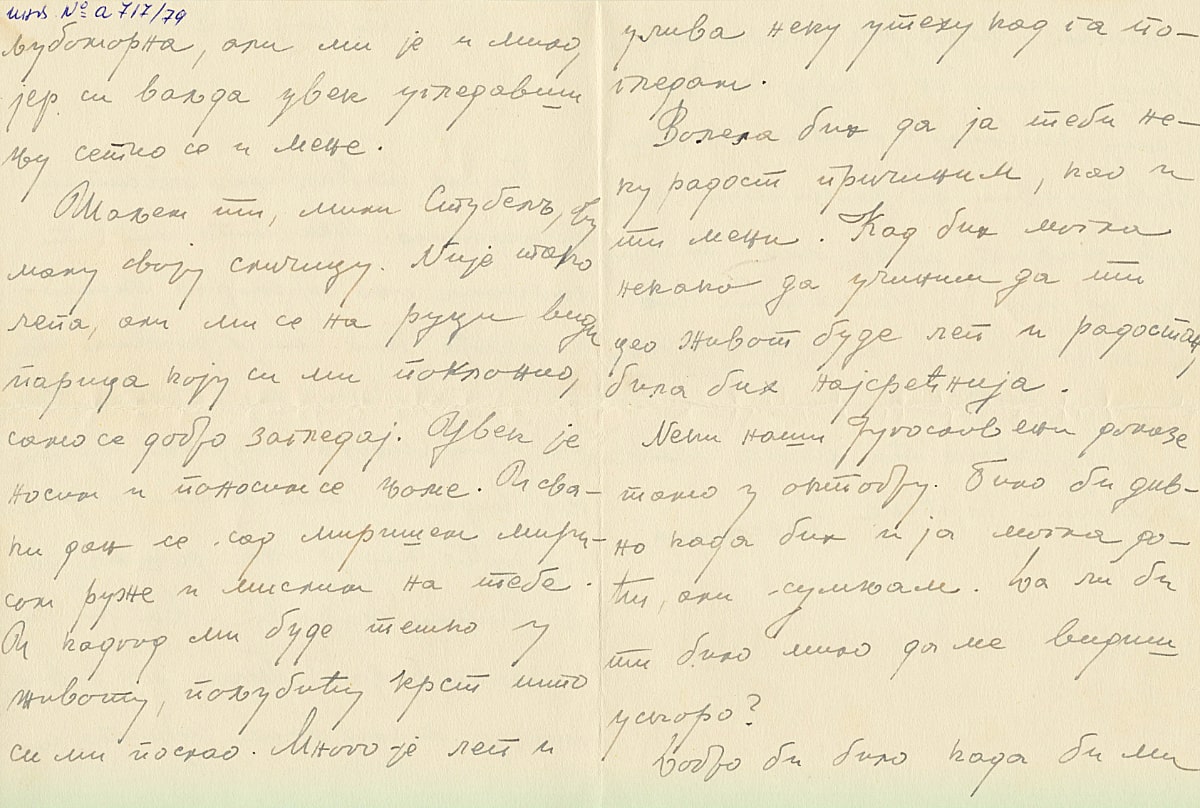 инв. № а 717/79
љубоморна, али ми је и мило,
јер си ваљда увек угледавши
њу сетио се и мене.
Шаљем ти, мили Ститубелъ, ову
малу своју сличицу. Није тако
лепа, али ми се на руци види
парица коју си ми поклонио,
само се добро загледај. Увек је
носим и поносим се њоме. И сва-
ки дан се сад миришем мири-
сом руже и мислим на тебе.
И кадгод ми буде тешко у
животу, пољубићу крст што
си ми послао. Много је леп и
улива неку утеху кад га по-
гледам.
Волела бих да ја теби не-
ку радост причиним, као и
ти мени. Кад бих могла
некако да учиним да ти
цео живот буде леп и радостан,
била бих најсрећнија.
Неки наши Југословени долазе
тамо у октобру. Било би див-
но када бих и ја могла до-
ћи, али сумњам. Да ли би
ти било мило да ме видиш
ускоро?
Добро би било када би ми